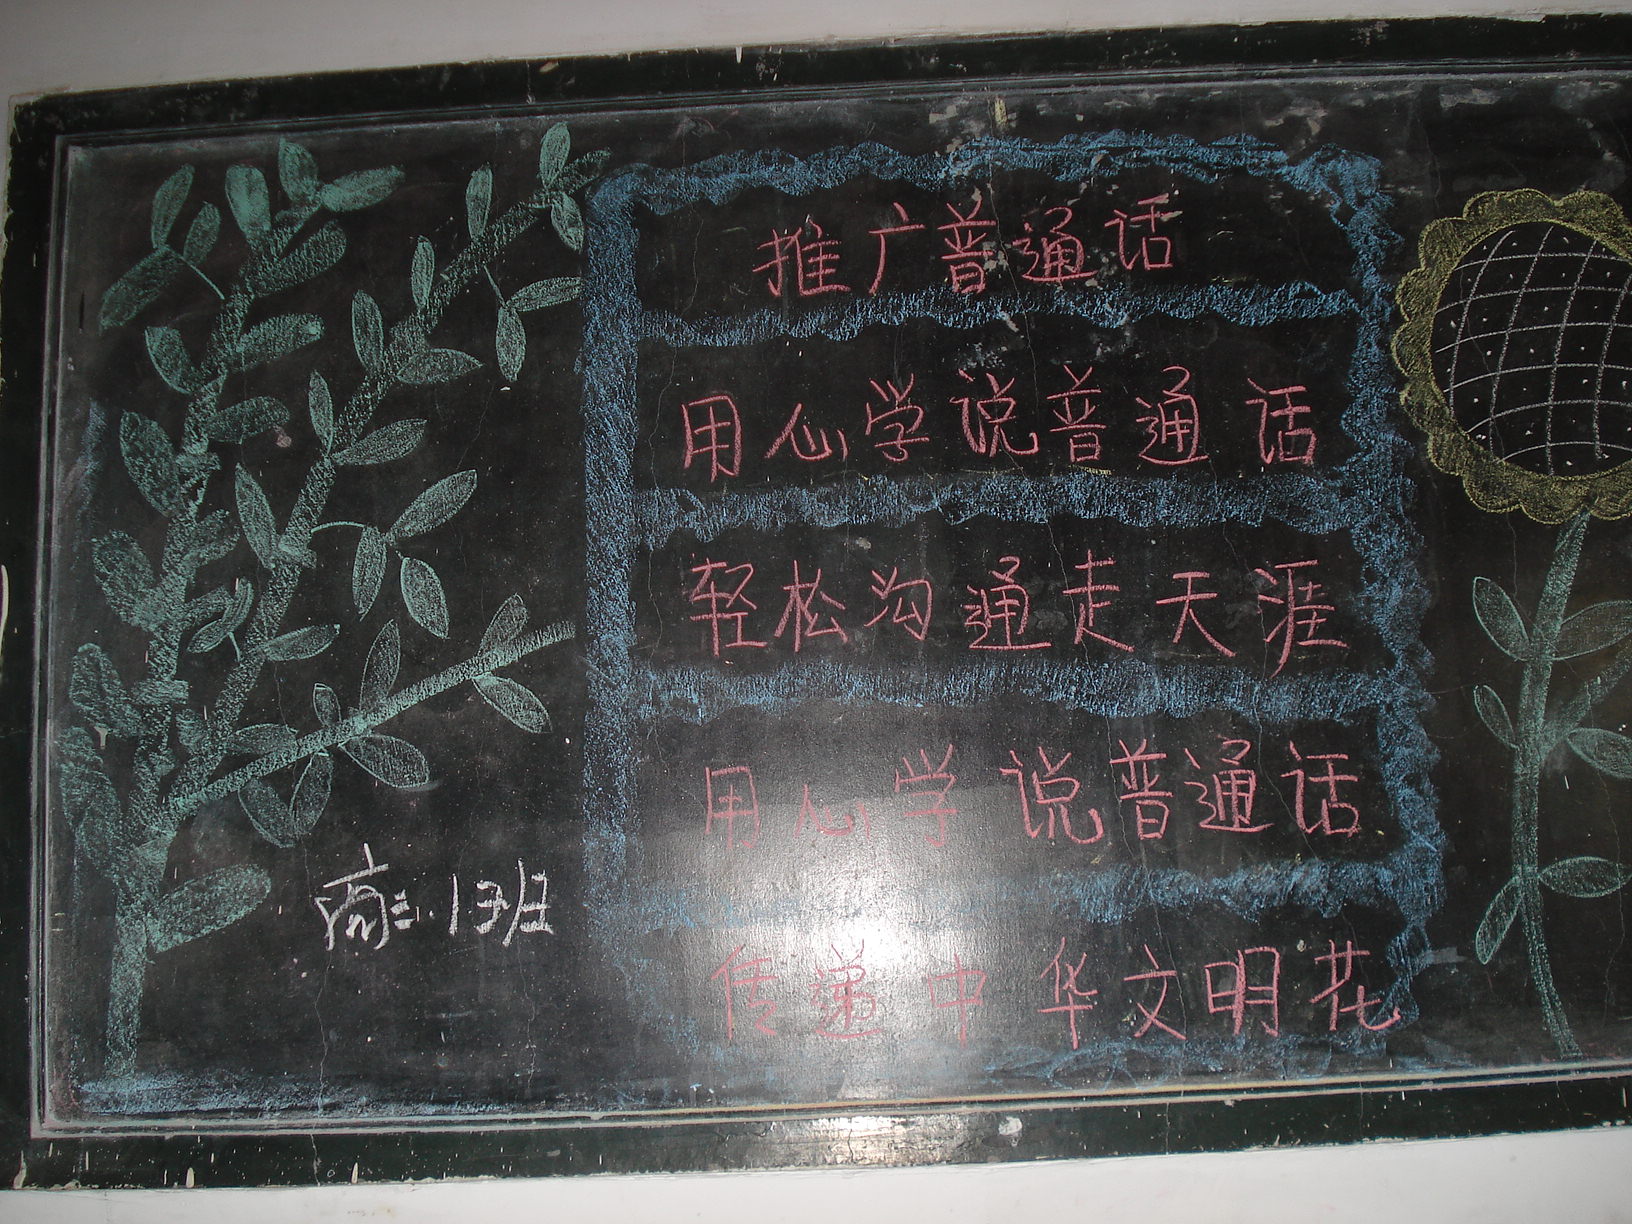 推广普通话
用心学说普通话
轻松沟通走天涯
用心学说普通话
传递中华文明花
商三.1班